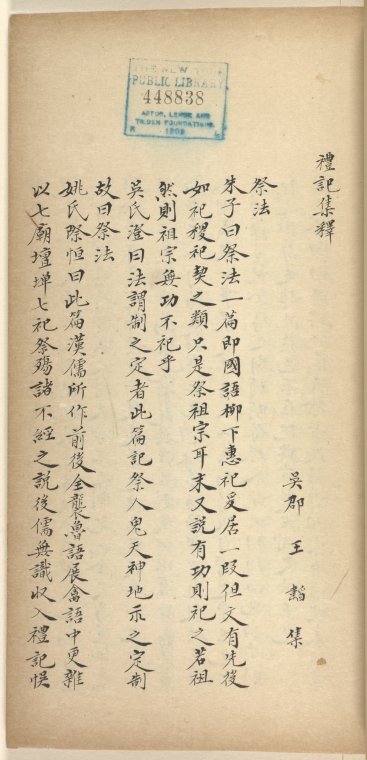 THE NEW YORK
PUBLIC LIBRARY
448838
ASTOR, LENOX AND
TILDEN FOUNDATIONS.
R 1909 L
禮記集釋
吳郡 王韜 集
祭法
朱子曰祭法一篇即國語柳下惠祀爰居一段但文有先後
如祀稷祀契之類只是祭祖宗耳末又説有功則祀之若祖
然則祖宗無功不祀乎
吳氏澄曰法謂制之定者此篇記祭人鬼天神地示之定制
故曰祭法
姚氏際恒曰此篇漢儒所作前後全襲魯語展禽語中更雜
以七廟壇墠七祀祭殤諸不經之説後儒無識収入禮記悞